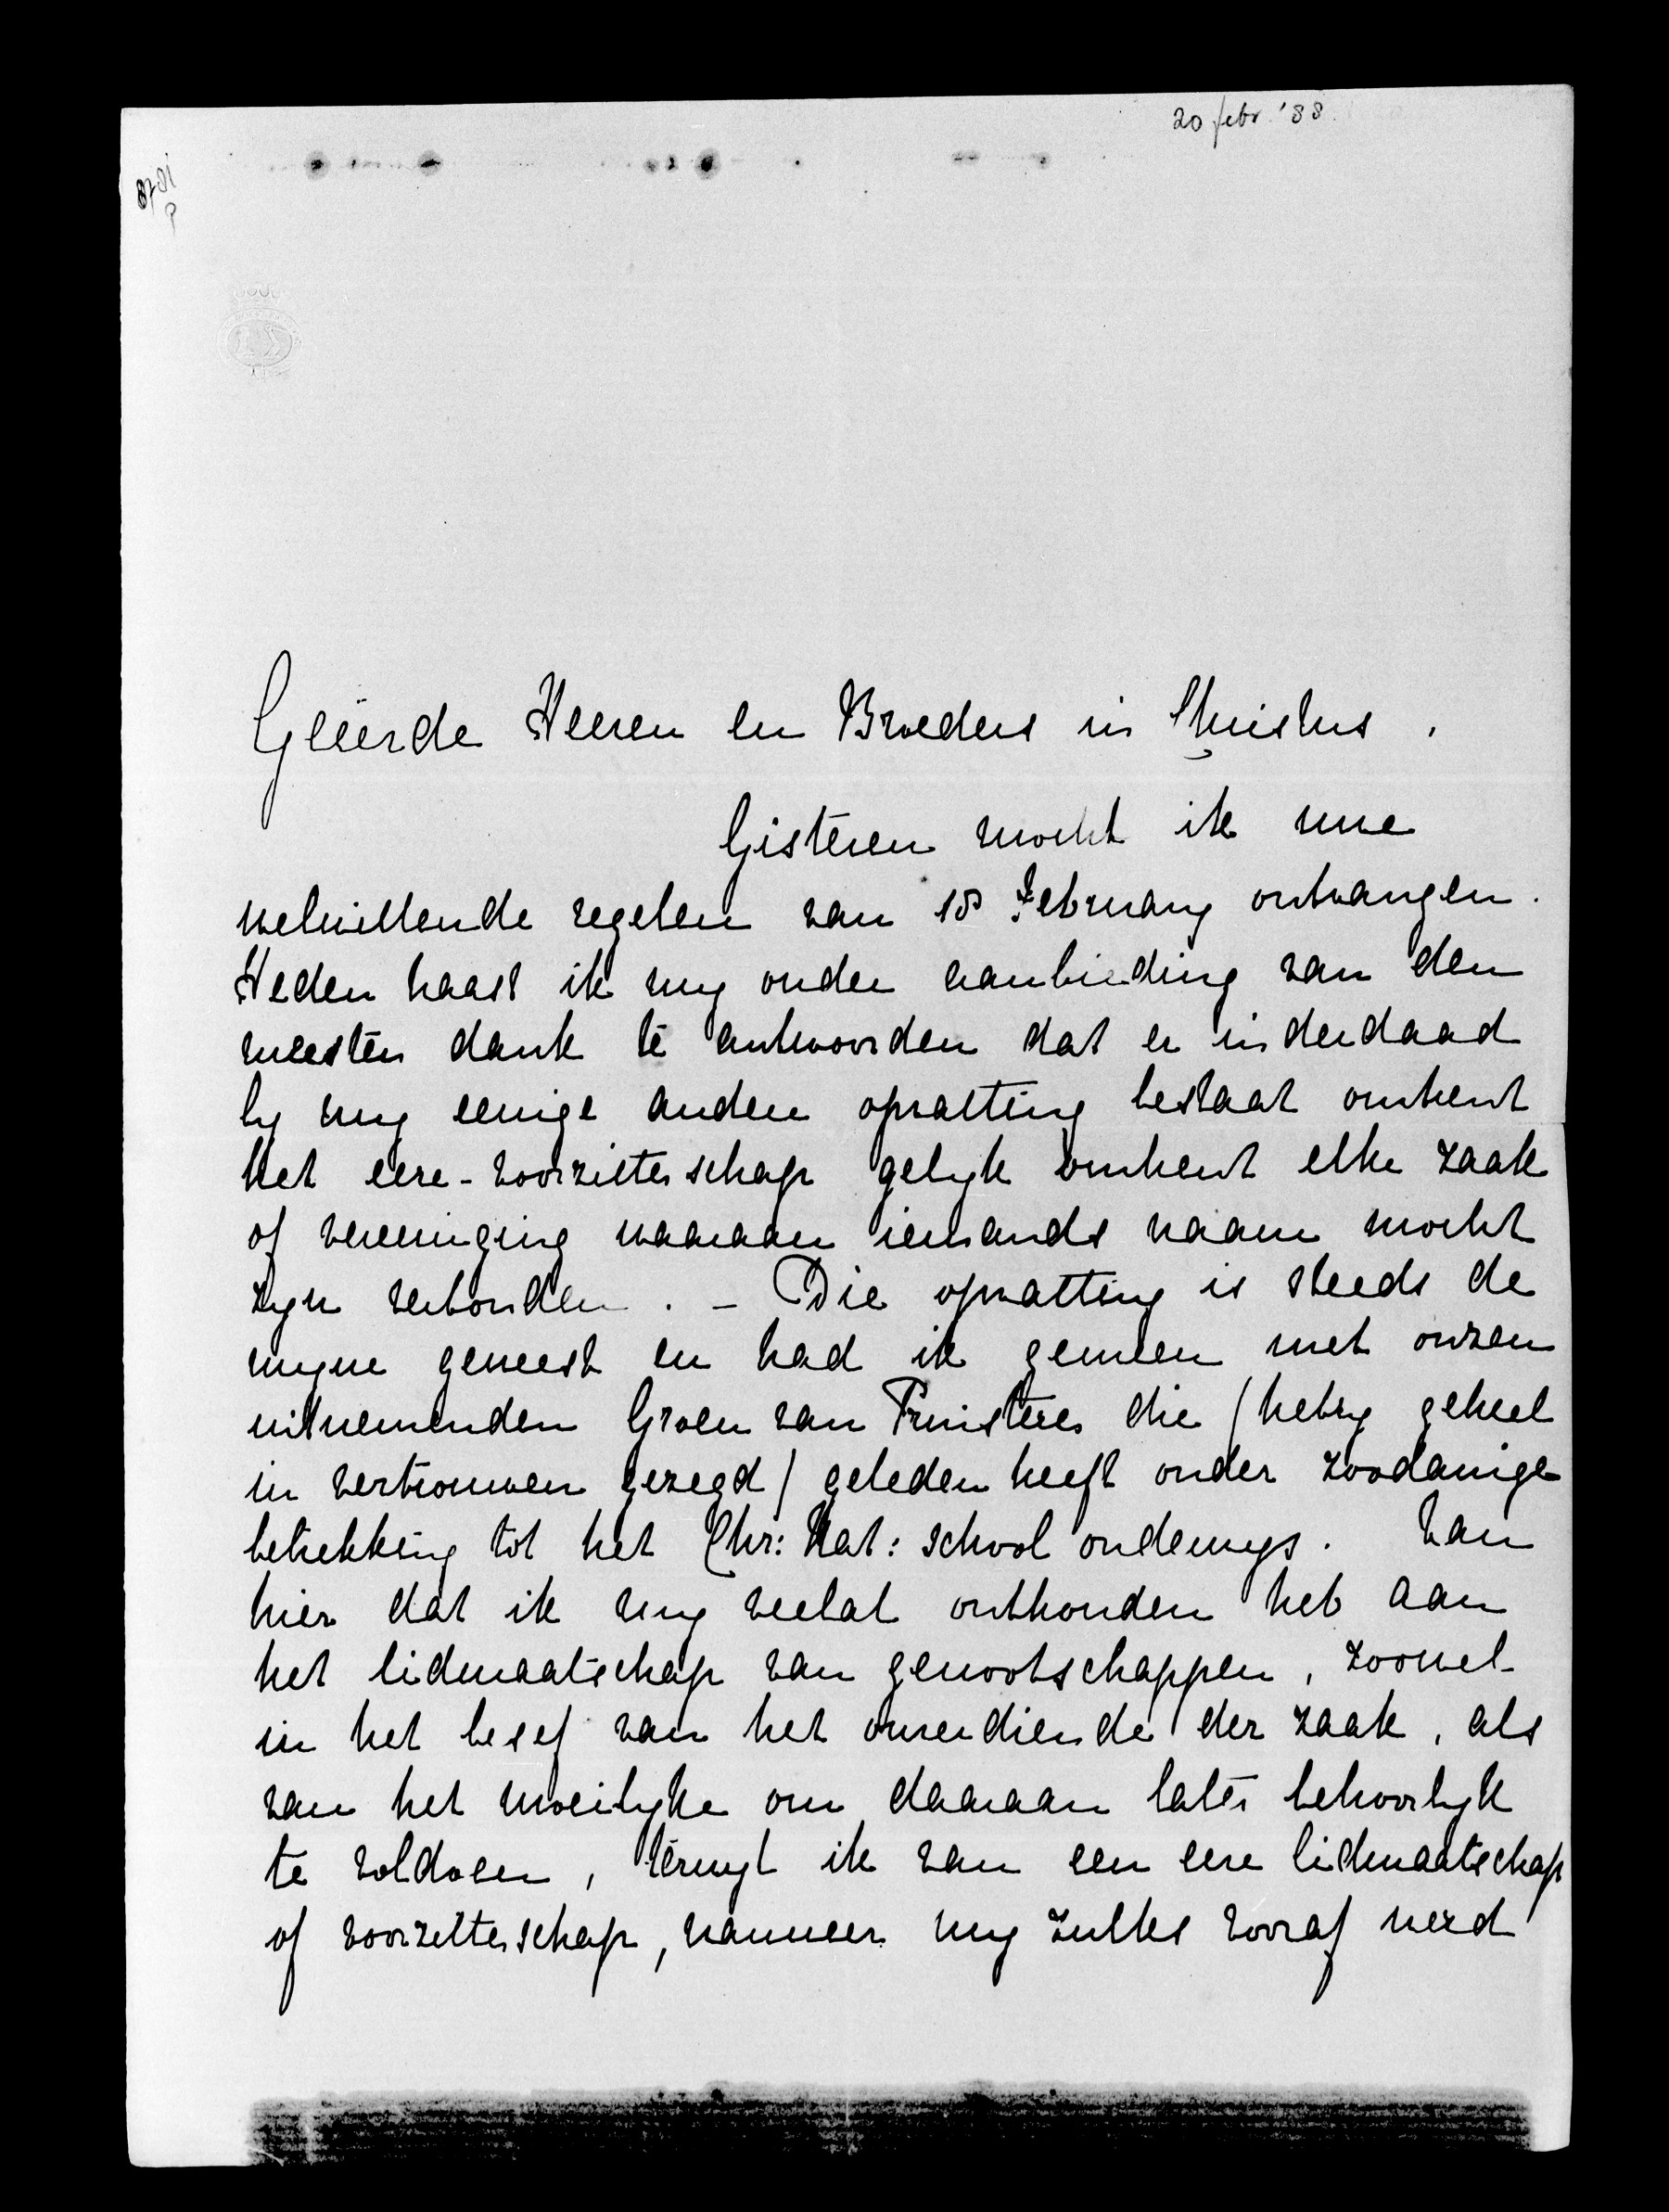 20 febr. '88.
Geëerde Heeren en Broeders in Christus.
Gisteren mocht ik uwe
welwillende regelen van 18 February ontvangen.
Heden haast ik my onder aanbieding van den
meesten dank te antwoorden dat er inderdaad
by my eenige andere opvatting bestaat omtrent
het eere-voorzitterschap gelyk omtrent elke zaak
of vereeniging waaraan iemands naam mocht
zyn verbonden. – Die opvatting is steeds de
myne geweest en had ik gemeen met onzen
uitnemenden Groen van Prinsterer die / het zy geheel
in vertrouwen gezegd / geleden heeft onder zoodanige
betrekking tot het Chr: Nat: school onderwys. Van
hier dat ik my veelal onthouden heb aan
het lidmaatschap van genootschappen, zoowel
in het besef van het onverdiende der zaak, als
van het moeilyke om daaraan later behoorlyk
te voldoen, terwyl ik van een eere lidmaatschap
of voorzitterschap, wanneer my zulks vooraf werd